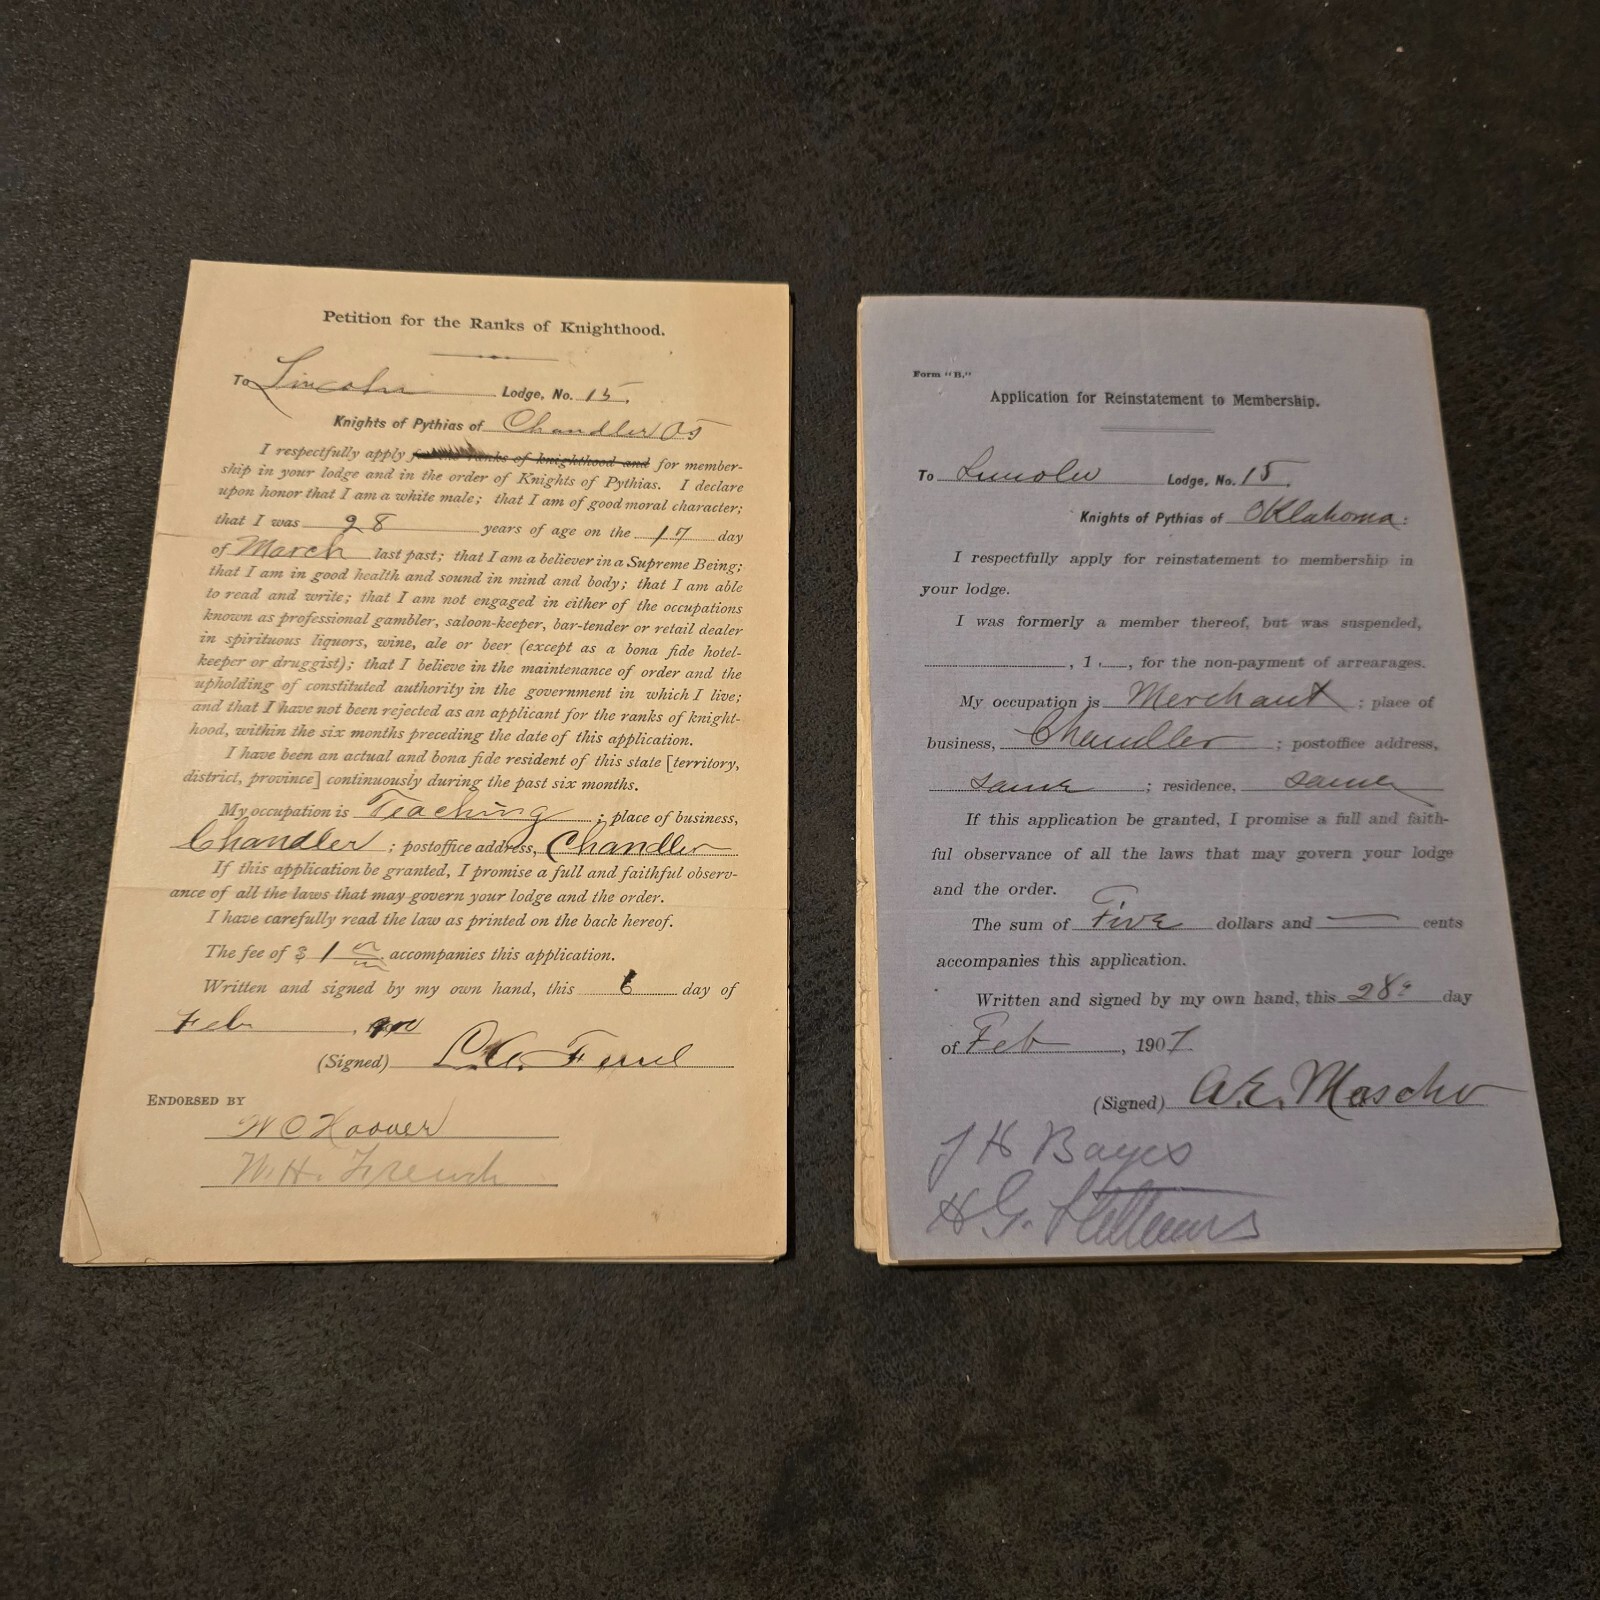 Petition for the Ranks of Knighthood.
To Lincoln Lodge, No. 15.
Knights of Pythias of Chandler OT
I respectfully apply for the ranks of knighthood and for member-
ship in your lodge and in the order of Knights of Pythias. I declare
upon honor that I am a white male; that I am of good moral character;
that I was 28 years of age on the 17 day
of March last past; that I am a believer in a Supreme Being;
that I am in good health and sound in mind and body; that I am able
to read and write; that I am not engaged in either of the occupations
known as professional gambler, saloon-keeper, bar-tender or retail dealer
in spirituous liquors, wine, ale or beer (except as a bona fide hotel-
keeper or druggist); that I believe in the maintenance of order and the
upholding of constituted authority in the government in which I live;
and that I have not been rejected as an applicant for the ranks of knight-
hood, within the six months preceding the date of this application.
I have been an actual and bona fide resident of this state [territory,
district, province] continuously during the past six months.
My occupation is Teaching ; place of business,
Chandler ; postoffice address, Chandler
If this application be granted, I promise a full and faithful observ-
ance of all the laws that may govern your lodge and the order.
I have carefully read the law as printed on the back hereof.
The fee of $ 1 accompanies this application.
Written and signed by my own hand, this 6 day of
Feb ,
(Signed) Ferrel
ENDORSED BY
W C Hoover
W. H. French
Form "B."
Application for Reinstatement to Membership.
To Lincoln Lodge, No. 15.
Knights of Pythias of Oklahoma:
I respectfully apply for reinstatement to membership in
your lodge.
I was formerly a member thereof, but was suspended,
, 1 , for the non-payment of arrearages.
My occupation is Merchant ; place of
business, Chandler ; postoffice address,
same ; residence, same
If this application be granted, I promise a full and faith-
ful observance of all the laws that may govern your lodge
and the order.
The sum of Five dollars and — cents
accompanies this application.
Written and signed by my own hand, this 28 day
of Feb , 1907
(Signed) A. E. Mascho
J H Bayes
H G.